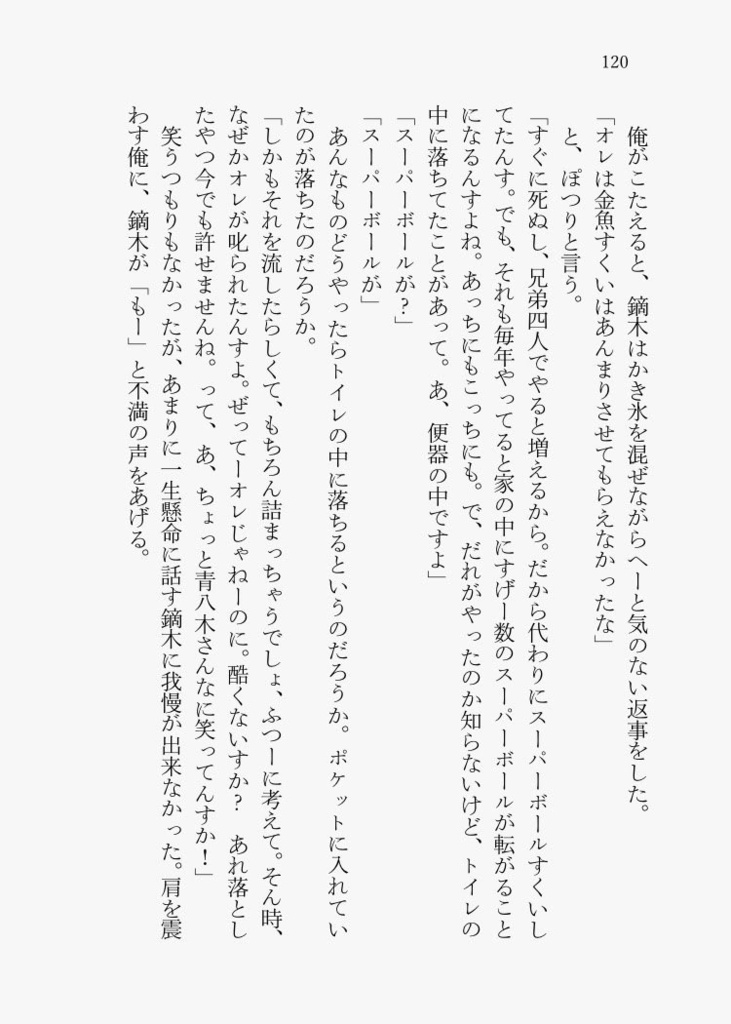 120
　俺がこたえると、鏑木はかき氷を混ぜながらへーと気のない返事をした。
「オレは金魚すくいはあんまりさせてもらえなかったな」
　と、ぽつりと言う。
「すぐに死ぬし、兄弟四人でやると増えるから。だから代わりにスーパーボールすくいし
てたんす。でも、それも毎年やってると家の中にすげー数のスーパーボールが転がること
になるんすよね。あっちにもこっちにも。で、だれがやったのか知らないけど、トイレの
中に落ちてたことがあって。あ、便器の中ですよ」
「スーパーボールが？」
「スーパーボールが」
　あんなものどうやったらトイレの中に落ちるというのだろうか。ポケットに入れてい
たのが落ちたのだろうか。
「しかもそれを流したらしくて、もちろん詰まっちゃうでしょ、ふつーに考えて。そん時、
なぜかオレが叱られたんすよ。ぜってーオレじゃねーのに。酷くないすか？　あれ落とし
たやつ今でも許せませんね。って、あ、ちょっと青八木さんなに笑ってんすか！」
　笑うつもりもなかったが、あまりに一生懸命に話す鏑木に我慢が出来なかった。肩を震
わす俺に、鏑木が「もー」と不満の声をあげる。